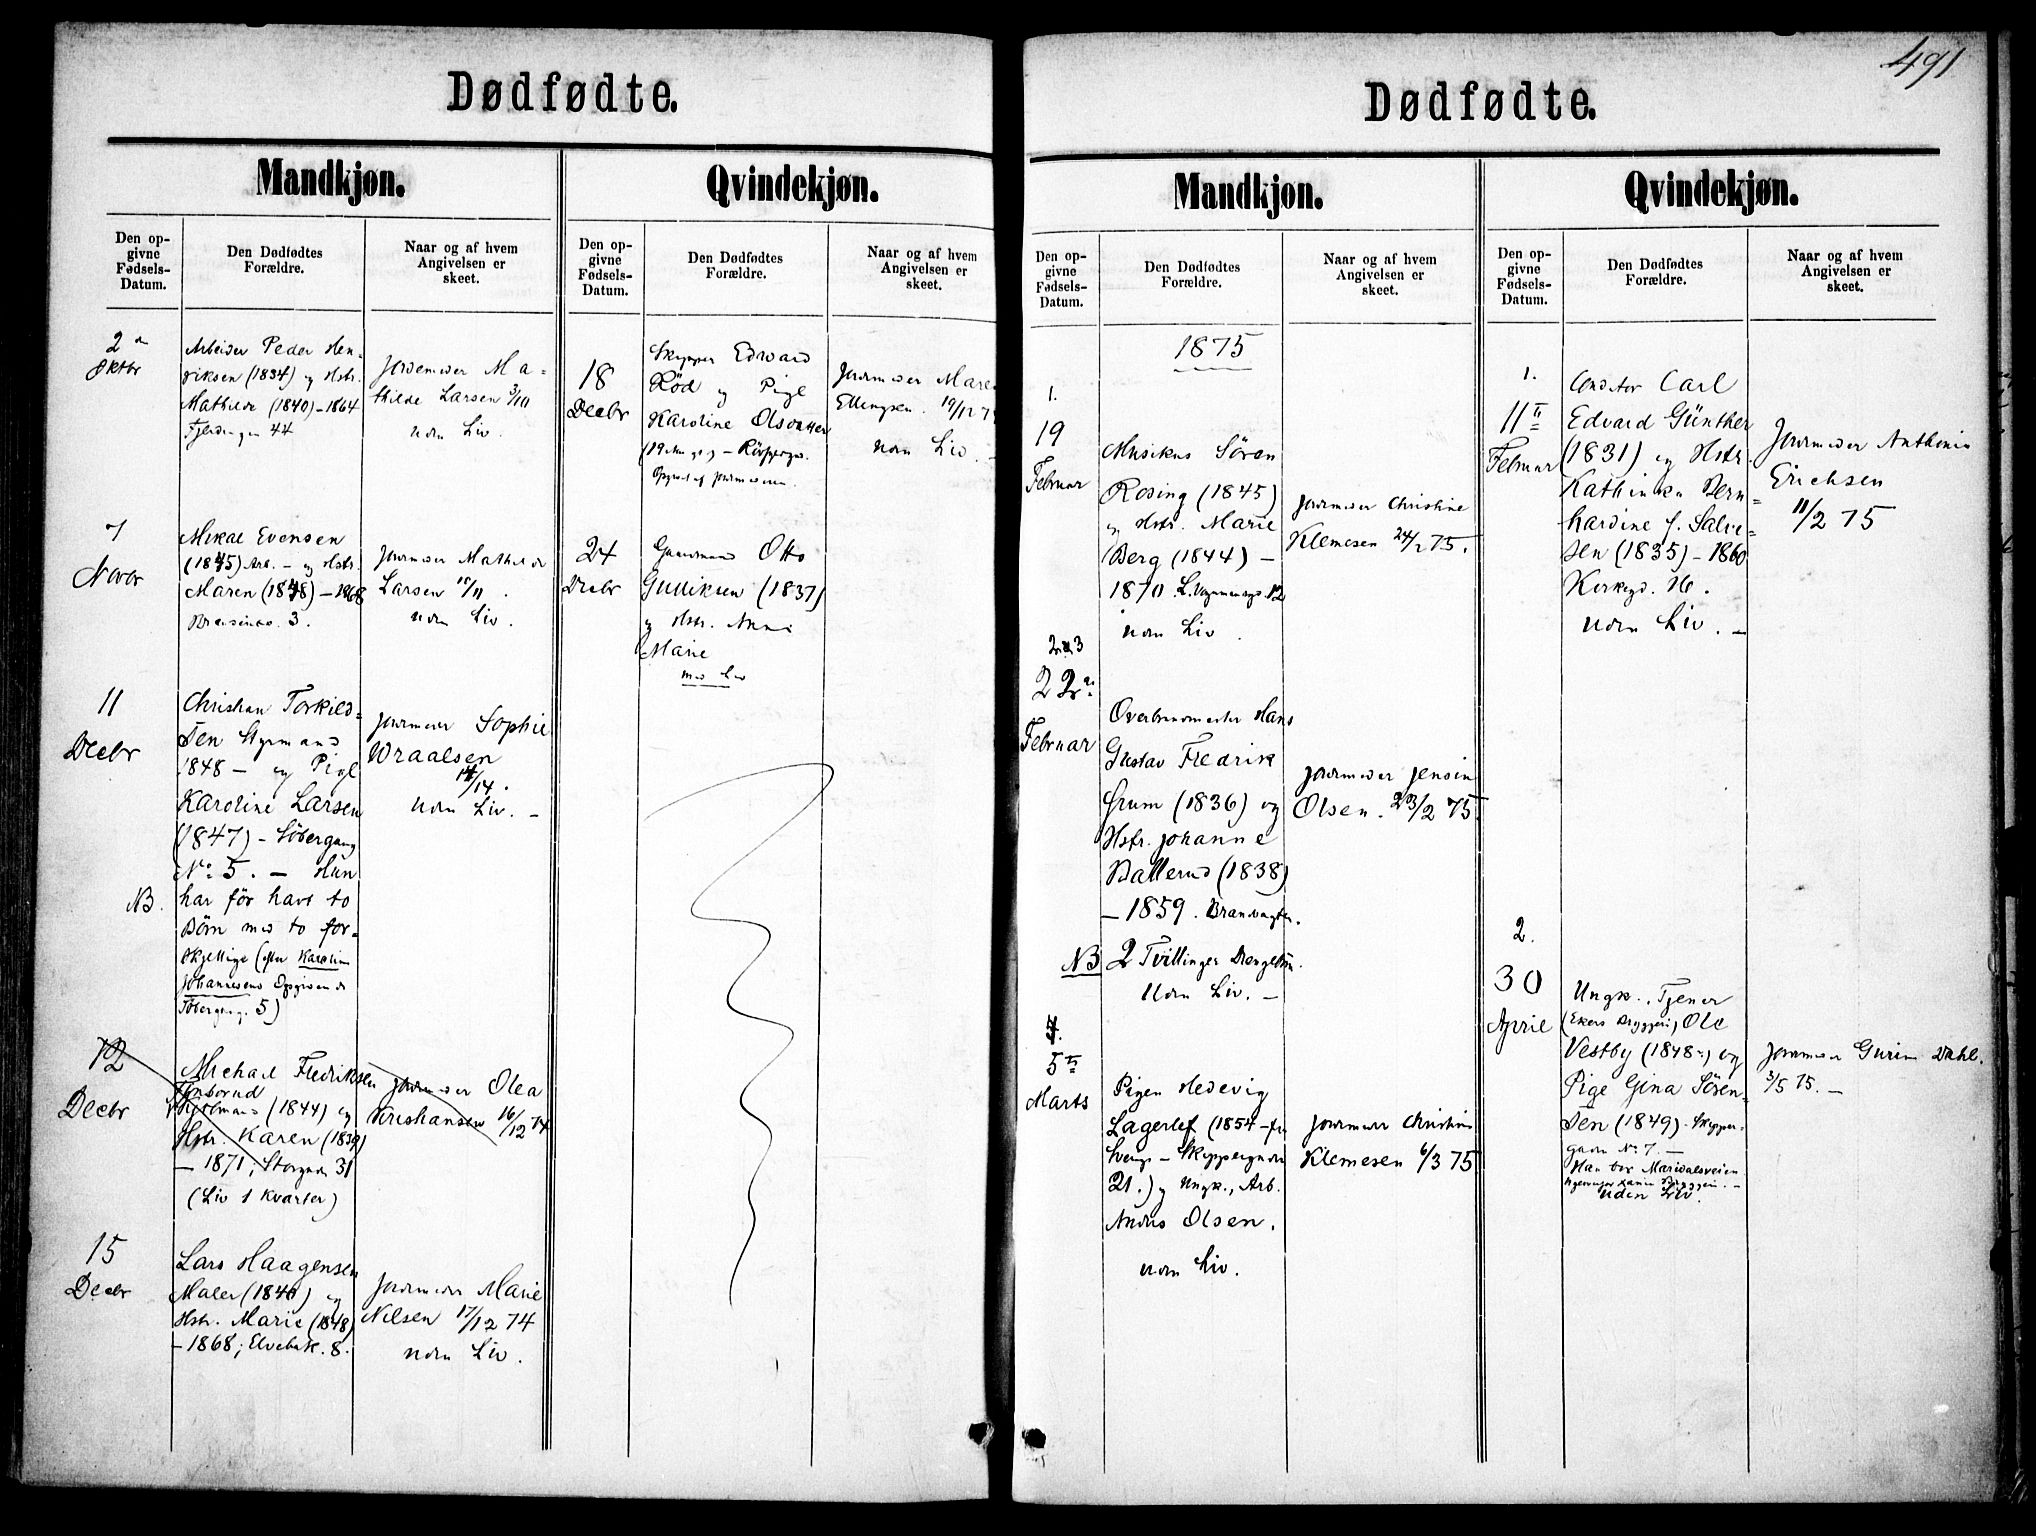 Dødfødte.
Mandkjøn.
Den op-
givne
Fødsels-
Datum.
Den Dødfødtes
Forældre.
Naar og af hvem
Angivelsen er
skeet.
2
Oktbr
Arbeider Peder Hen-
riksen (1834) og Hstr.
Mathilde (1840) – 1864
44
Jordemoder Ma-
thilde Larsen 3/10
uden Liv.
7
Novbr
Mikal Evensen
(1845) Arb. – og Hstr.
Maren (1848) – 1868
3.
Jordmoder Mathilde
Larsen 10/11.
uden Liv.
11
Decbr
Christian Torkild-
sen Styrmand
1848 – og Pige
Karoline Larsen
(1847) – Söbergang
No 5. – Hun
NB. har för havt to
Börn med to for-
skjellige (efter Karoline
Johannesens Opgivende
5)
Jordmoder Sophie
Wraalsen
14.
uden Liv. –
12
Decbr
Michael Fredriksen
(1844) og
Hstr. Karen (1839)
– 1871; Storgaden 31
(Liv 1 Kvarter)
Jordmoder Olea
Kristiansen 16/12 74
15
Decbr
Lars Haagensen
Maler (1846) og
Hstr. Marie (1848)
– 1868; Elvebak. 8.
Jordmoder Marie
Nilsen 17/12 74
uden Liv.
Qvindekjøn.
Den op-
givne
Fødsels-
Datum.
Den Dødfødtes
Forældre.
Naar og af hvem
Angivelsen er
skeet.
18
Decbr
Skipper Edward
Röd og Pige
Karoline Olsdatter
Opgivet af Jordmoderen.
Jordmoder Maren
Ellingsen. 19/12 74
uden Liv. –
24
Decbr
Gaardmand Otto
Gulliksen (1837)
og Hstr. Anne
Marie
Dødfødte.
491
Mandkjøn.
Den op-
givne
Fødsels-
Datum.
Den Dødfødtes
Forældre.
Naar og af hvem
Angivelsen er
skeet.
1875
1.
19
Februar
Musikus Sören
Rosing (1845)
og Hstr. Marie
Berg (1844) –
1870. 12
uden Liv.
Jordmoder Christine
Klemesen 24/2 75.
2 3
22
Februar
Overbrandmester Hans
Gustav Fredrik
Grum (1836) og
Hstr. Johanne
Ballerud (1838)
– 1859. Brandvagten.
NB 2 Tvillinger Drengebörn.
Uden Liv. –
Jordmoder Jensine
Olsen. 23/2 75
4.
5te
Marts
Pigen Hedevig
Lagerlef (1854 – fra
Sverige – Skippergaden
21.) og Ungk., Arb.
Anders Olsen.
uden Liv.
Jordmoder Christine
Klemesen 6/3 75
Qvindekjøn.
Den op-
givne
Fødsels-
Datum.
Den Dødfødtes
Forældre.
Naar og af hvem
Angivelsen er
skeet.
1.
11te
Februar
Conditor Carl
Edvard Günther
(1831) og Hstr.
Kathinka Bern-
hardine f. Salve-
sen (1835) – 1860
Kirkegd. 16.
uden Liv. –
Jordmoder Anthonie
Erichsen
11/2 75
2.
30
April
Ungk., Tjener
(Ekers Bryggeri) Ole
Vestby (1848) og
Pige Gina Sören-
sen (1849) – Skipper-
gaden No 7. –
Han bor Maridalsveien
uden Liv.
Jordmoder Gurine Dahl.
3/5 75. –